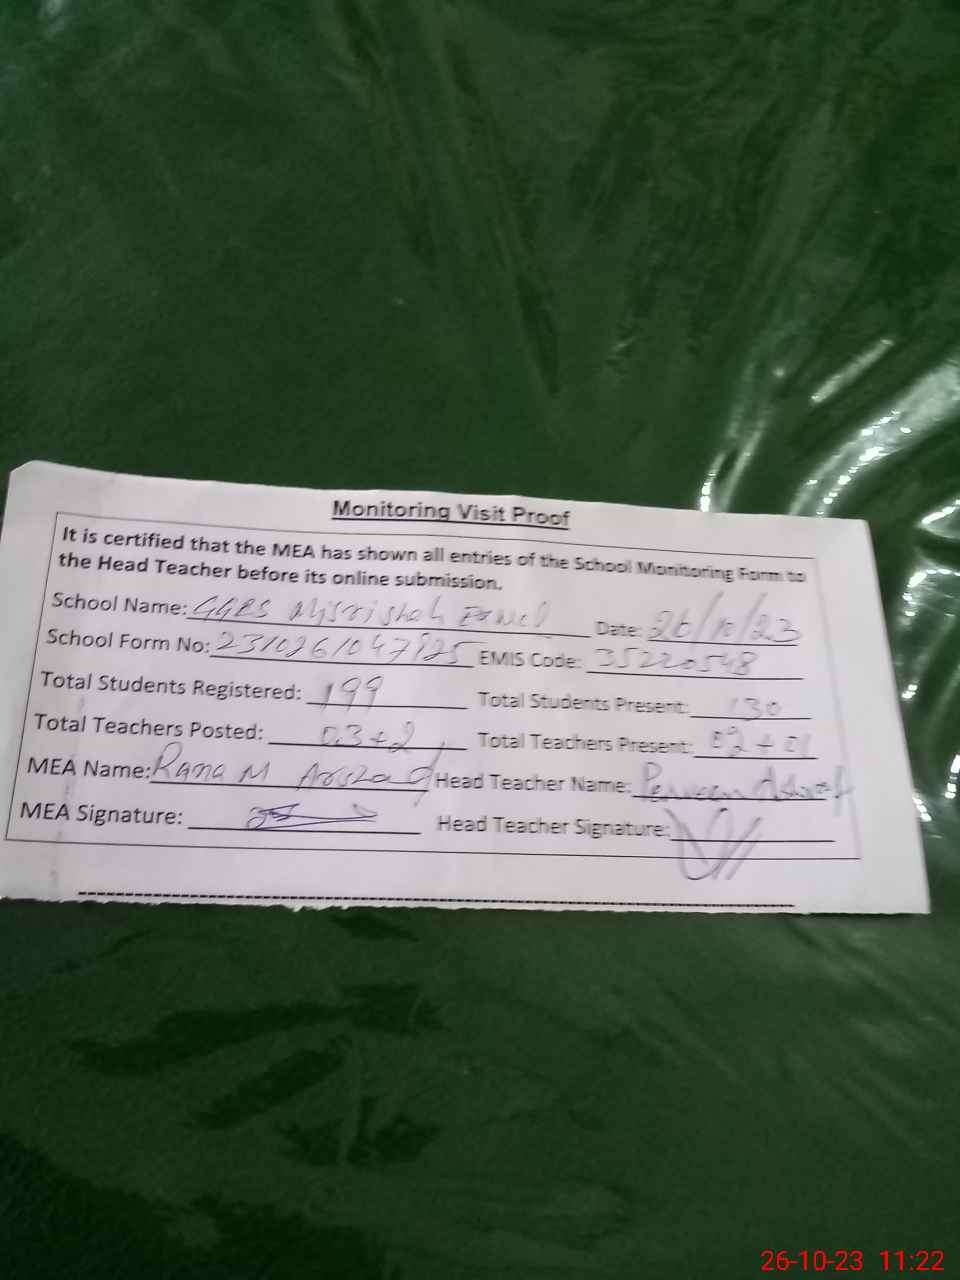 Monitoring Visit Proof
It is certified that the MEA has shown all entries of the School Monitoring Form to
the Head Teacher before its online submission.
School Name: GGES Date: 26/10/23
School Form No: 2310261047925 EMIS Code: 35220548
Total Students Registered: 199 Total Students Present: 130
Total Teachers Posted: 03+2 Total Teachers Present: 02+01
MEA Name: Rana M Head Teacher Name: Perveen Ashraf
MEA Signature: Head Teacher Signature:
26-10-23 11:22